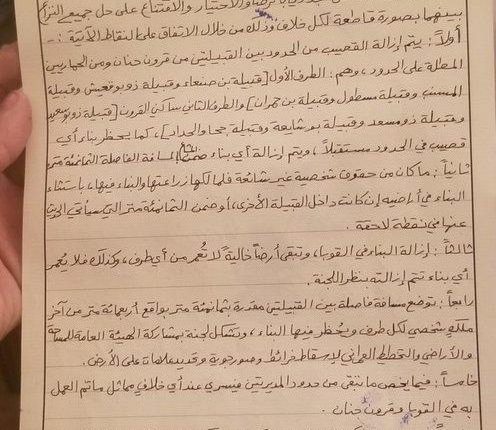 بينهما بصورة قاطعة لكل خلاف وذلك من خلال الاتفاق على النقاط الآتية :-
أولاً: يتم إزالة القصيب من الحدود بين القبيلتين من قرون حنان ومن
المطلة على الحدود، وهم: الطرف الأول [قبيلة بن صنعاء وقبيلة ذو بوقعش وقبيلة
وقبيلة مسطول وقبيلة بن حمران] والطرف الثاني ساكن القرون [قبيلة ذو بوسعيد
وقبيلة ذو مسعد وقبيلة بوشايعة وقبيلة جحا والحداب]، كما يحظر بناء أي
قصيب في الحدود مستقبلاً، ويتم إزالة أي بناء ضمن المسافة الفاصلة الثمانمئة متر
ثانياً: ما كان من حقوق شخصية غير شائعة فلمالكها زراعتها والبناء فيها، باستثناء
البناء في أراضيه إن كانت داخل القبيلة الأخرى، أو ضمن الثمانمئة متر التي سيأتي الحديث
عنها في نقطة لاحقة.
ثالثاً: إزالة البناء في القوبا، وتبقى أرضاً خالية لا تُعمر من أي طرف، وكذلك فلا يعمر
أي بناء تتم إزالته بنظر اللجنة.
رابعاً: توضع مسافة فاصلة بين القبيلتين مقدرة بثمانمئة متر بواقع أربعمائة متر من آخر
ملك شخصي لكل طرف ويُحظر فيها البناء، وتشكل لجنة بمشاركة الهيئة العامة للمساحة
والأراضي والتخطيط العمراني لإسقاط خرائط وصور جوية وتحديد علامات على الأرض.
خامساً: فيما يخص ما تبقى من حدود المديريتين فيسري عند أي خلاف مماثل ما تم العمل
به في القوبا وقرون حنان.